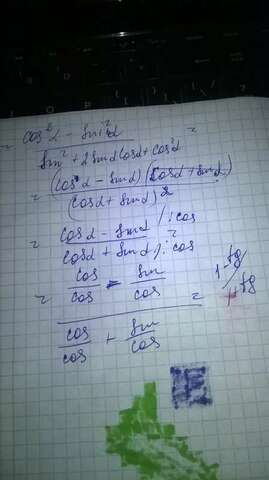 = cos²α - sin²α =
sin² + 2sinαcosα + cos²α
(cosα - sinα)(cosα + sinα)
(cosα + sinα)²
= cosα - sinα /: cos =
cosα + sinα /: cos
= cos/cos - sin/cos = 1-tg
cos/cos + sin/cos 1+tg